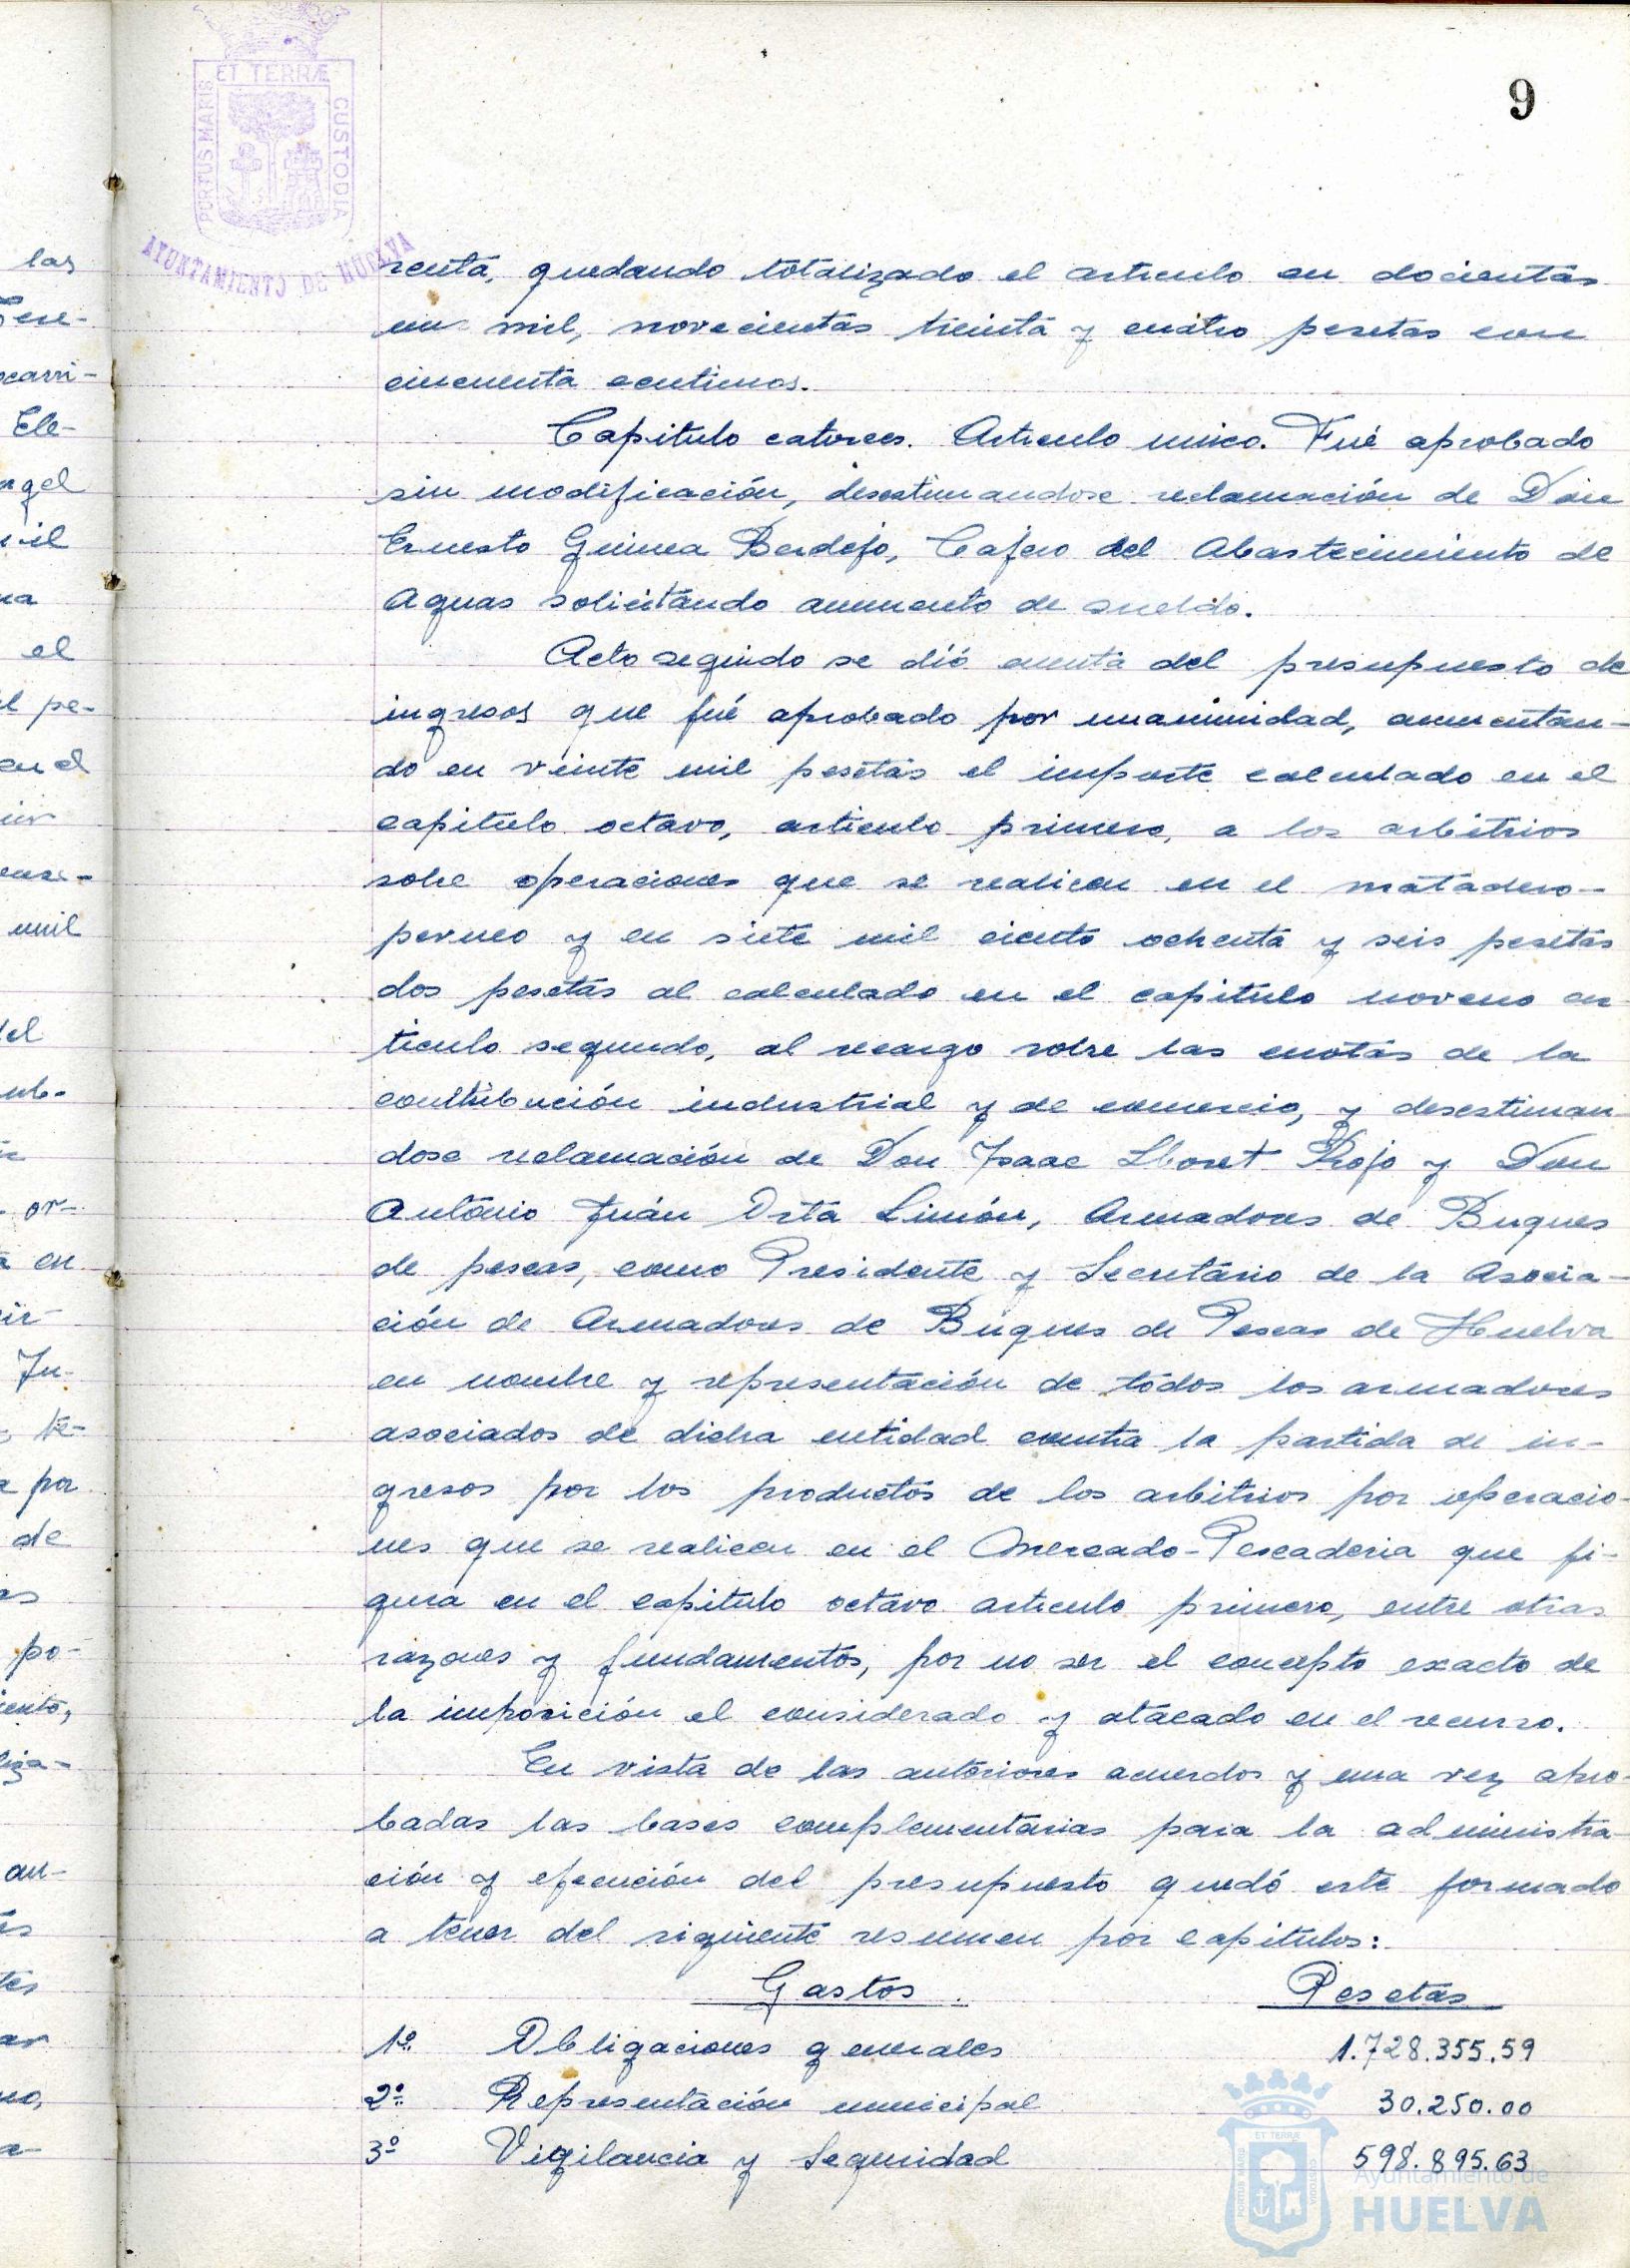 9
ET TERRÆ
PORTUS MARIS
CUSTODIA
AYUNTAMIENTO DE HUELVA
las
renta, quedando totalizado el articulo en docientas
un mil, novecientas treinta y cuatro pesetas con
cincuenta centimos.
Capitulo catorce. Articulo unico. Fué aprobado
sin modificación, desestimandose reclamación de Don
Ernesto Guinea Berdejo, Cajero del Abastecimiento de
Aguas solicitando aumento de sueldo.
Acto seguido se dió cuenta del presupuesto de
ingresos que fué aprobado por unanimidad, aumentan-
do en veinte mil pesetas el importe calculado en el
capitulo octavo, articulo primero, a los arbitrios
sobre operaciones que se realicen en el matadero-
perneo y en siete mil ciento ochenta y seis pesetas
dos pesetas al calculado en el capitulo noveno ar
ticulo segundo, al recargo sobre las cuotas de la
contribución industrial y de comercio, y desestiman
dose reclamación de Don Isaac Lloret Rojo y Don
Antonio Juán Orta Limón, Armadores de Buques
de pescas, como Presidente y Secretario de la Asocia-
ción de Armadores de Buques de Pescas de Huelva
en nombre y representación de todos los armadores
asociados de dicha entidad contra la partida de in-
gresos por los productos de los arbitrios por operacio-
nes que se realicen en el Mercado-Pescaderia que fi-
gura en el capitulo octavo articulo primero, entre otras
razones y fundamentos, por no ser el concepto exacto de
la imposición el considerado y atacado en el recurso.
En vista de las anteriores acuerdos y una vez apro-
badas las bases complementarias para la administra-
ción y ejecución del presupuesto quedó este formado
a tenor del siguiente resumen por capitulos:
Gastos. Pesetas
1º Obligaciones generales 1.728.355.59
2º Representación municipal 30.250.00
3º Vigilancia y Seguridad 598.895.63
Ayuntamiento de
HUELVA